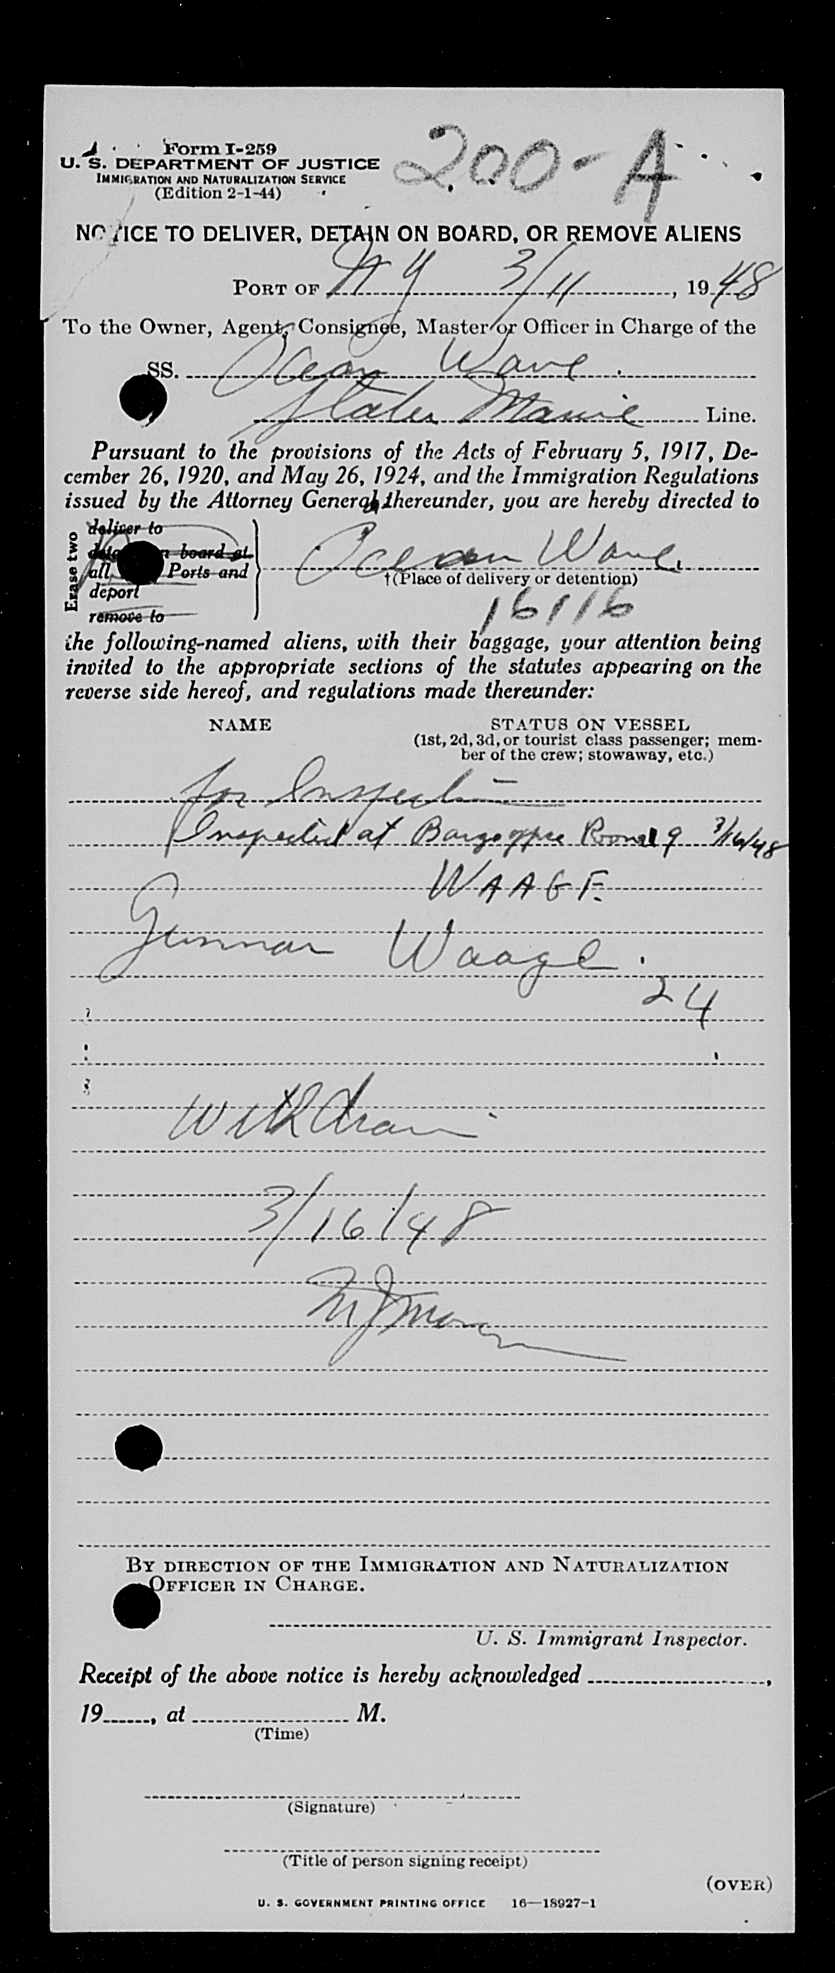 Form I-259
200-A
U. S. DEPARTMENT OF JUSTICE
IMMIGRATION AND NATURALIZATION SERVICE
(Edition 2-1-44)
NOTICE TO DELIVER, DETAIN ON BOARD, OR REMOVE ALIENS
PORT OF N Y 3/11, 1948
To the Owner, Agent, Consignee, Master or Officer in Charge of the
SS. Ocean Wave
States Marine Line.
Pursuant to the provisions of the Acts of February 5, 1917, De-
cember 26, 1920, and May 26, 1924, and the Immigration Regulations
issued by the Attorney General thereunder, you are hereby directed to
Erase two
deliver to
board at
all Ports and
deport
remove to
Ocean Wave
†(Place of delivery or detention)
16116
the following-named aliens, with their baggage, your attention being
invited to the appropriate sections of the statutes appearing on the
reverse side hereof, and regulations made thereunder:
NAME STATUS ON VESSEL
(1st, 2d, 3d, or tourist class passenger; mem-
ber of the crew; stowaway, etc.)
for Inspection
Inspected at Barge office Room 9 3/16/48
WAAGE
Gunnar Waage.
24
Withdrawn
3/16/48
BY DIRECTION OF THE IMMIGRATION AND NATURALIZATION
OFFICER IN CHARGE.
U. S. Immigrant Inspector.
Receipt of the above notice is hereby acknowledged ,
19 , at M.
(Time)
(Signature)
(Title of person signing receipt)
(OVER)
U. S. GOVERNMENT PRINTING OFFICE 16—18927-1